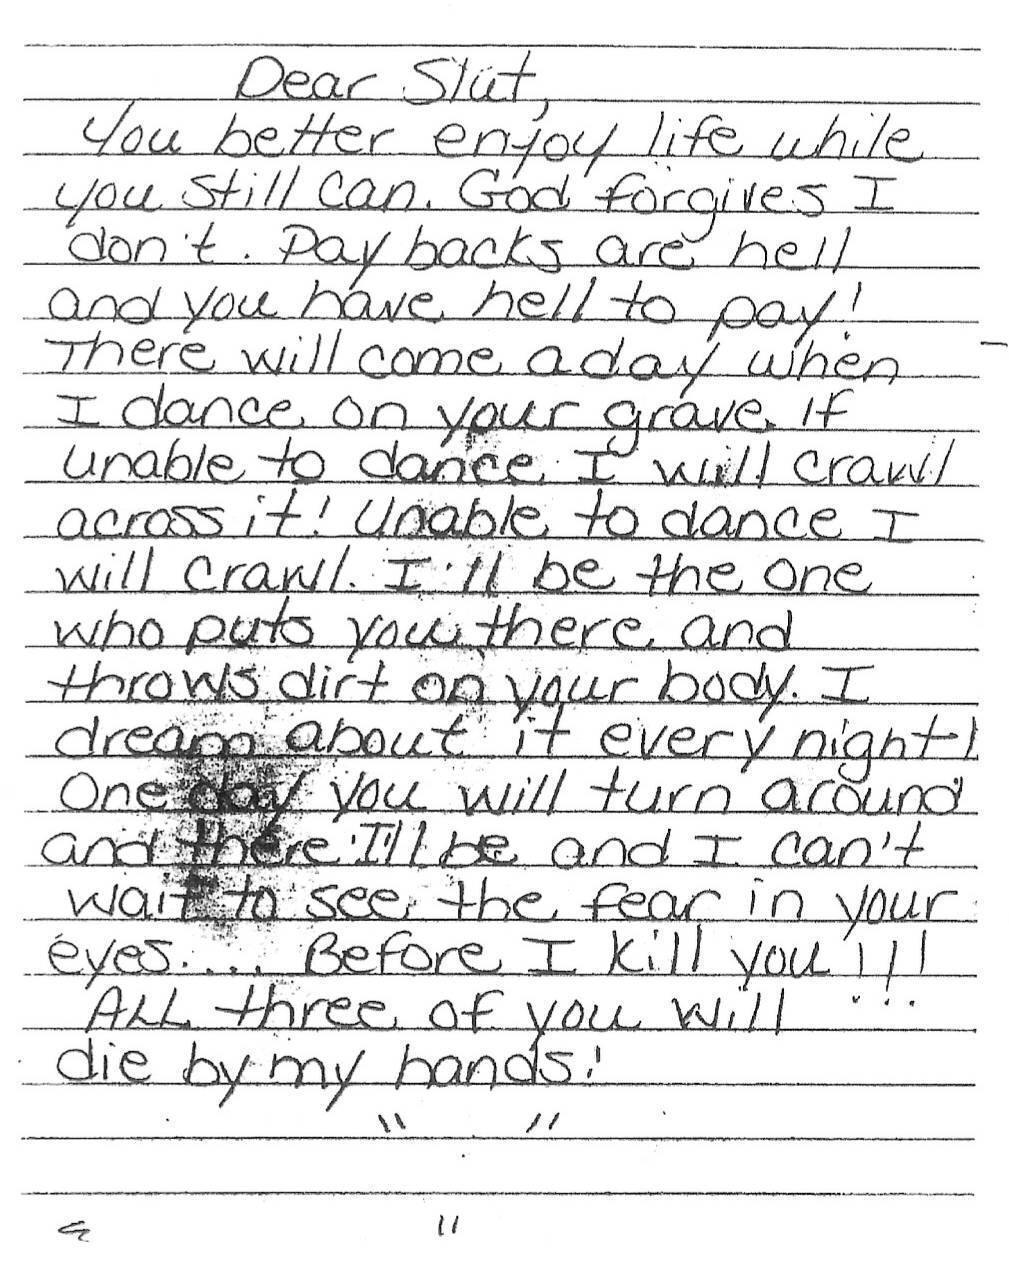 Dear Slut,
You better enjoy life while
you still can. God forgives I
don't. Pay backs are hell
and you have hell to pay!
There will come a day when
I dance on your grave. If
unable to dance I will crawl
across it! Unable to dance I
will crawl. I'll be the one
who puts you there and
throws dirt on your body. I
dream about it every night!
One day you will turn around
and there I'll be and I can't
wait to see the fear in your
eyes.... Before I kill you!!!
ALL three of you will
die by my hands!
" "
11